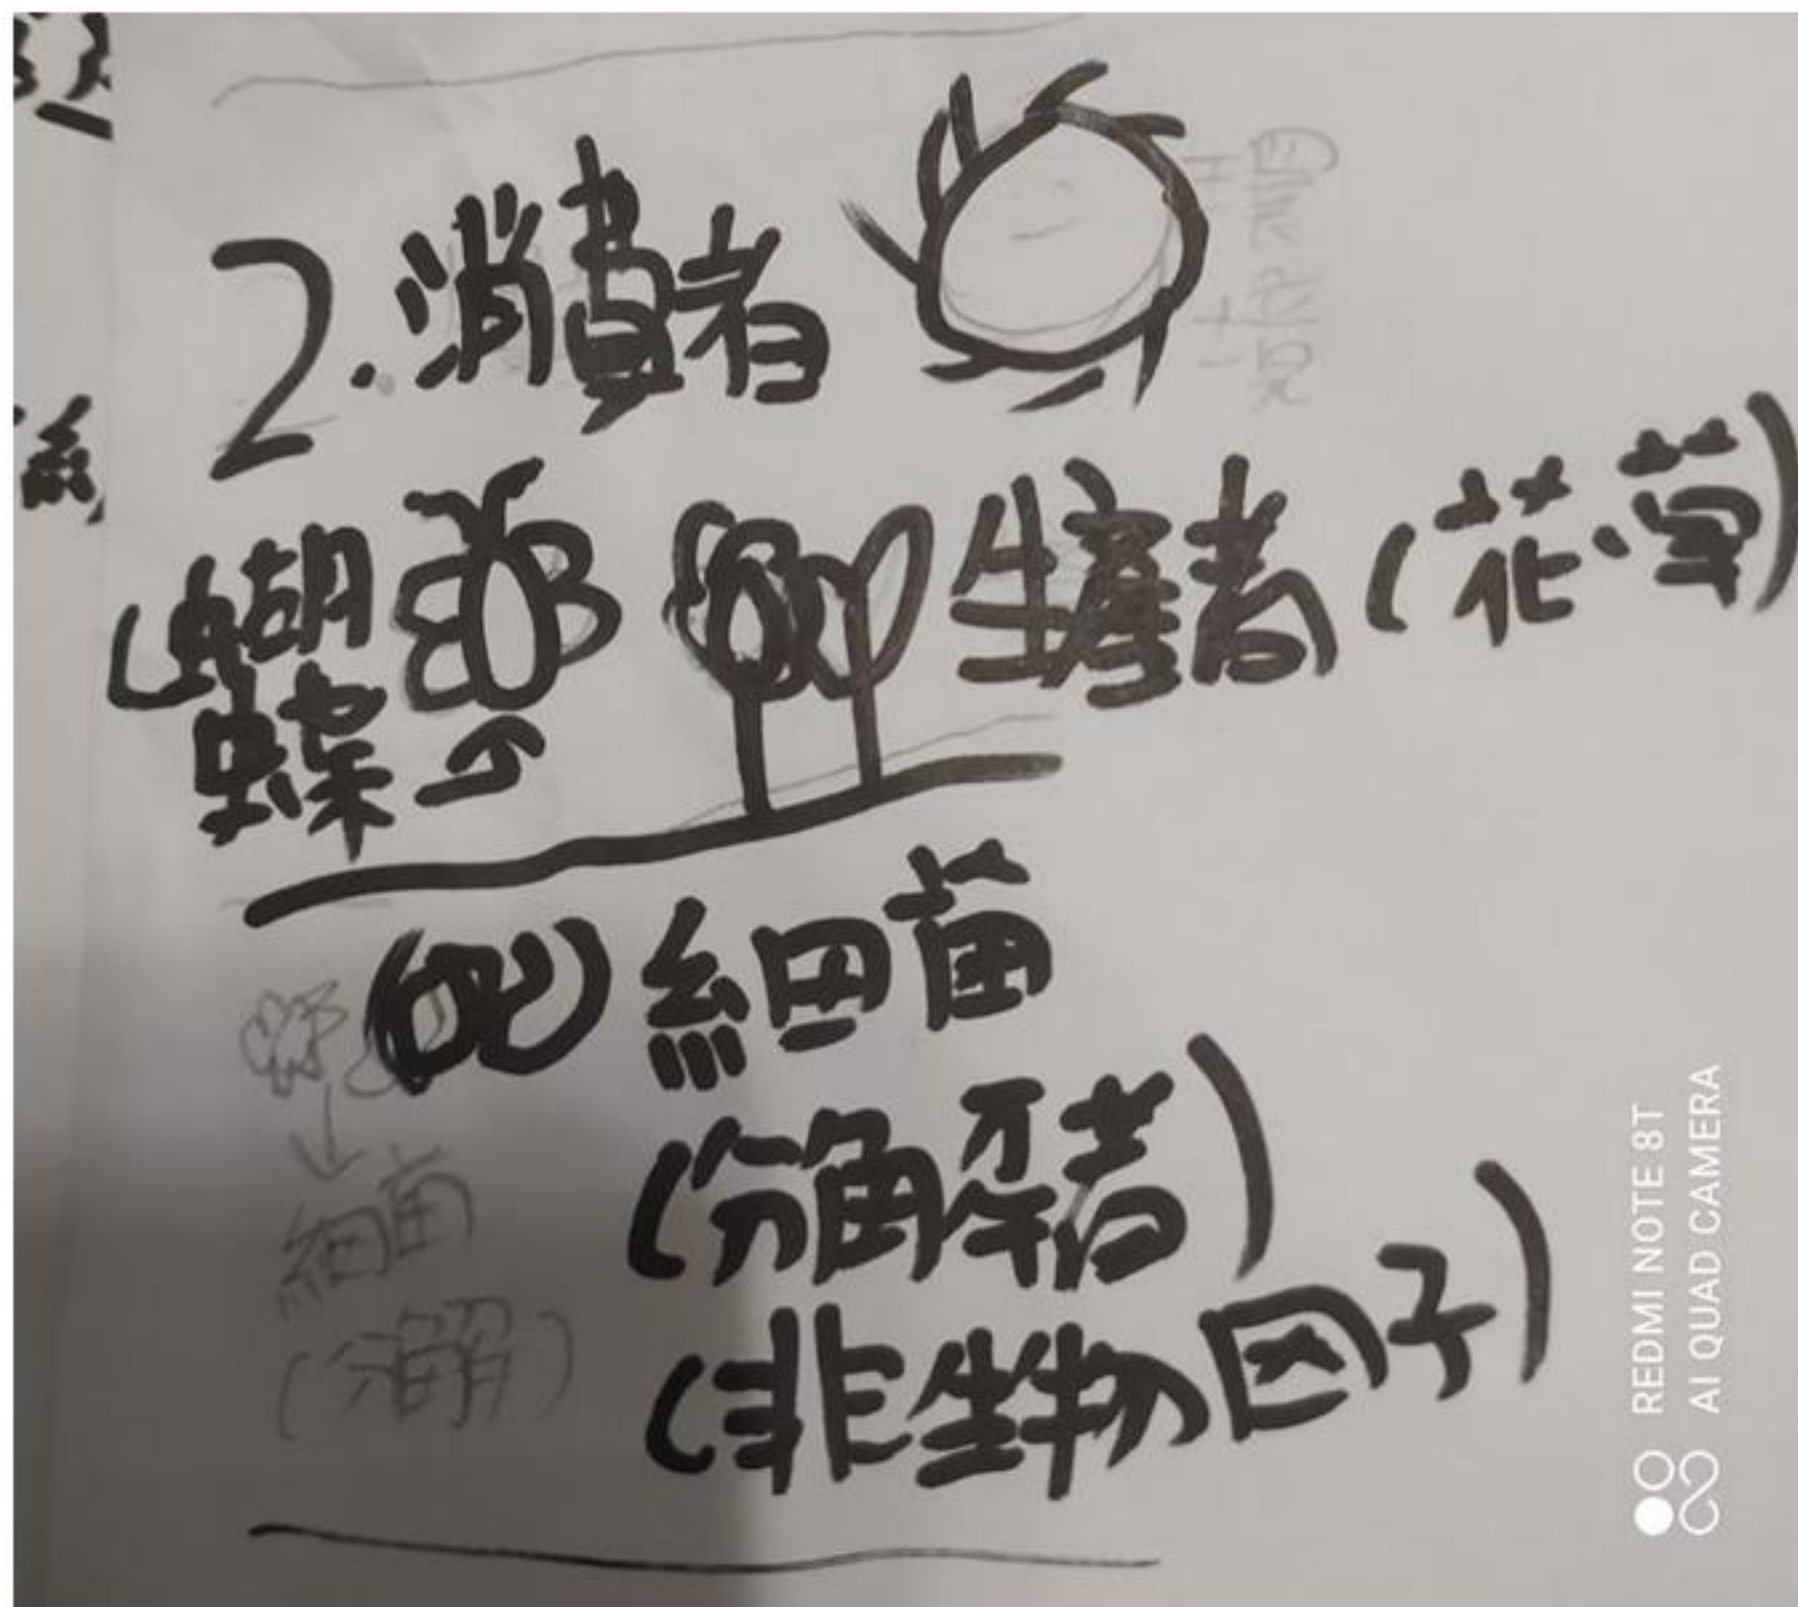 2.消費者
(蝴
蝶
生產者(花、菊)
細菌
(分解者)
(非生物因子)
細菌
(分解)
REDMI NOTE 8T
AI QUAD CAMERA